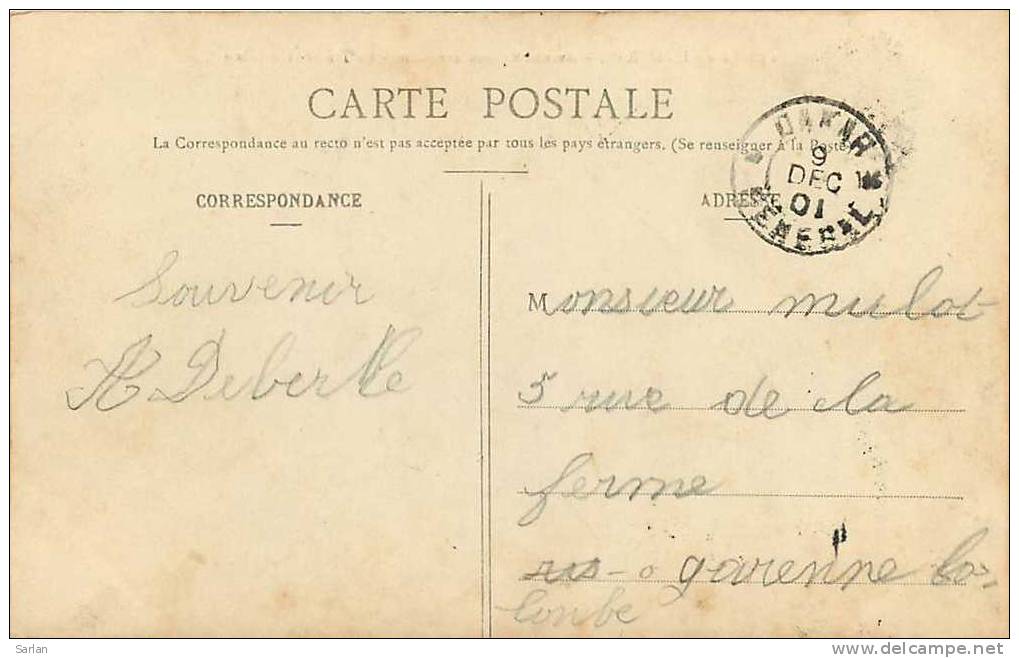 CARTE POSTALE
La Correspondance au recto n'est pas acceptée par tous les pays étrangers. (Se renseigner à la Poste)
CORRESPONDANCE
ADRESSE
DAKAR
9
DEC
01
SENEGAL
Souvenir
A Deberkle
Monsieur mulot
5 rue de la
ferme
garenne Co-
lombe
Sarlan
delcampe.net